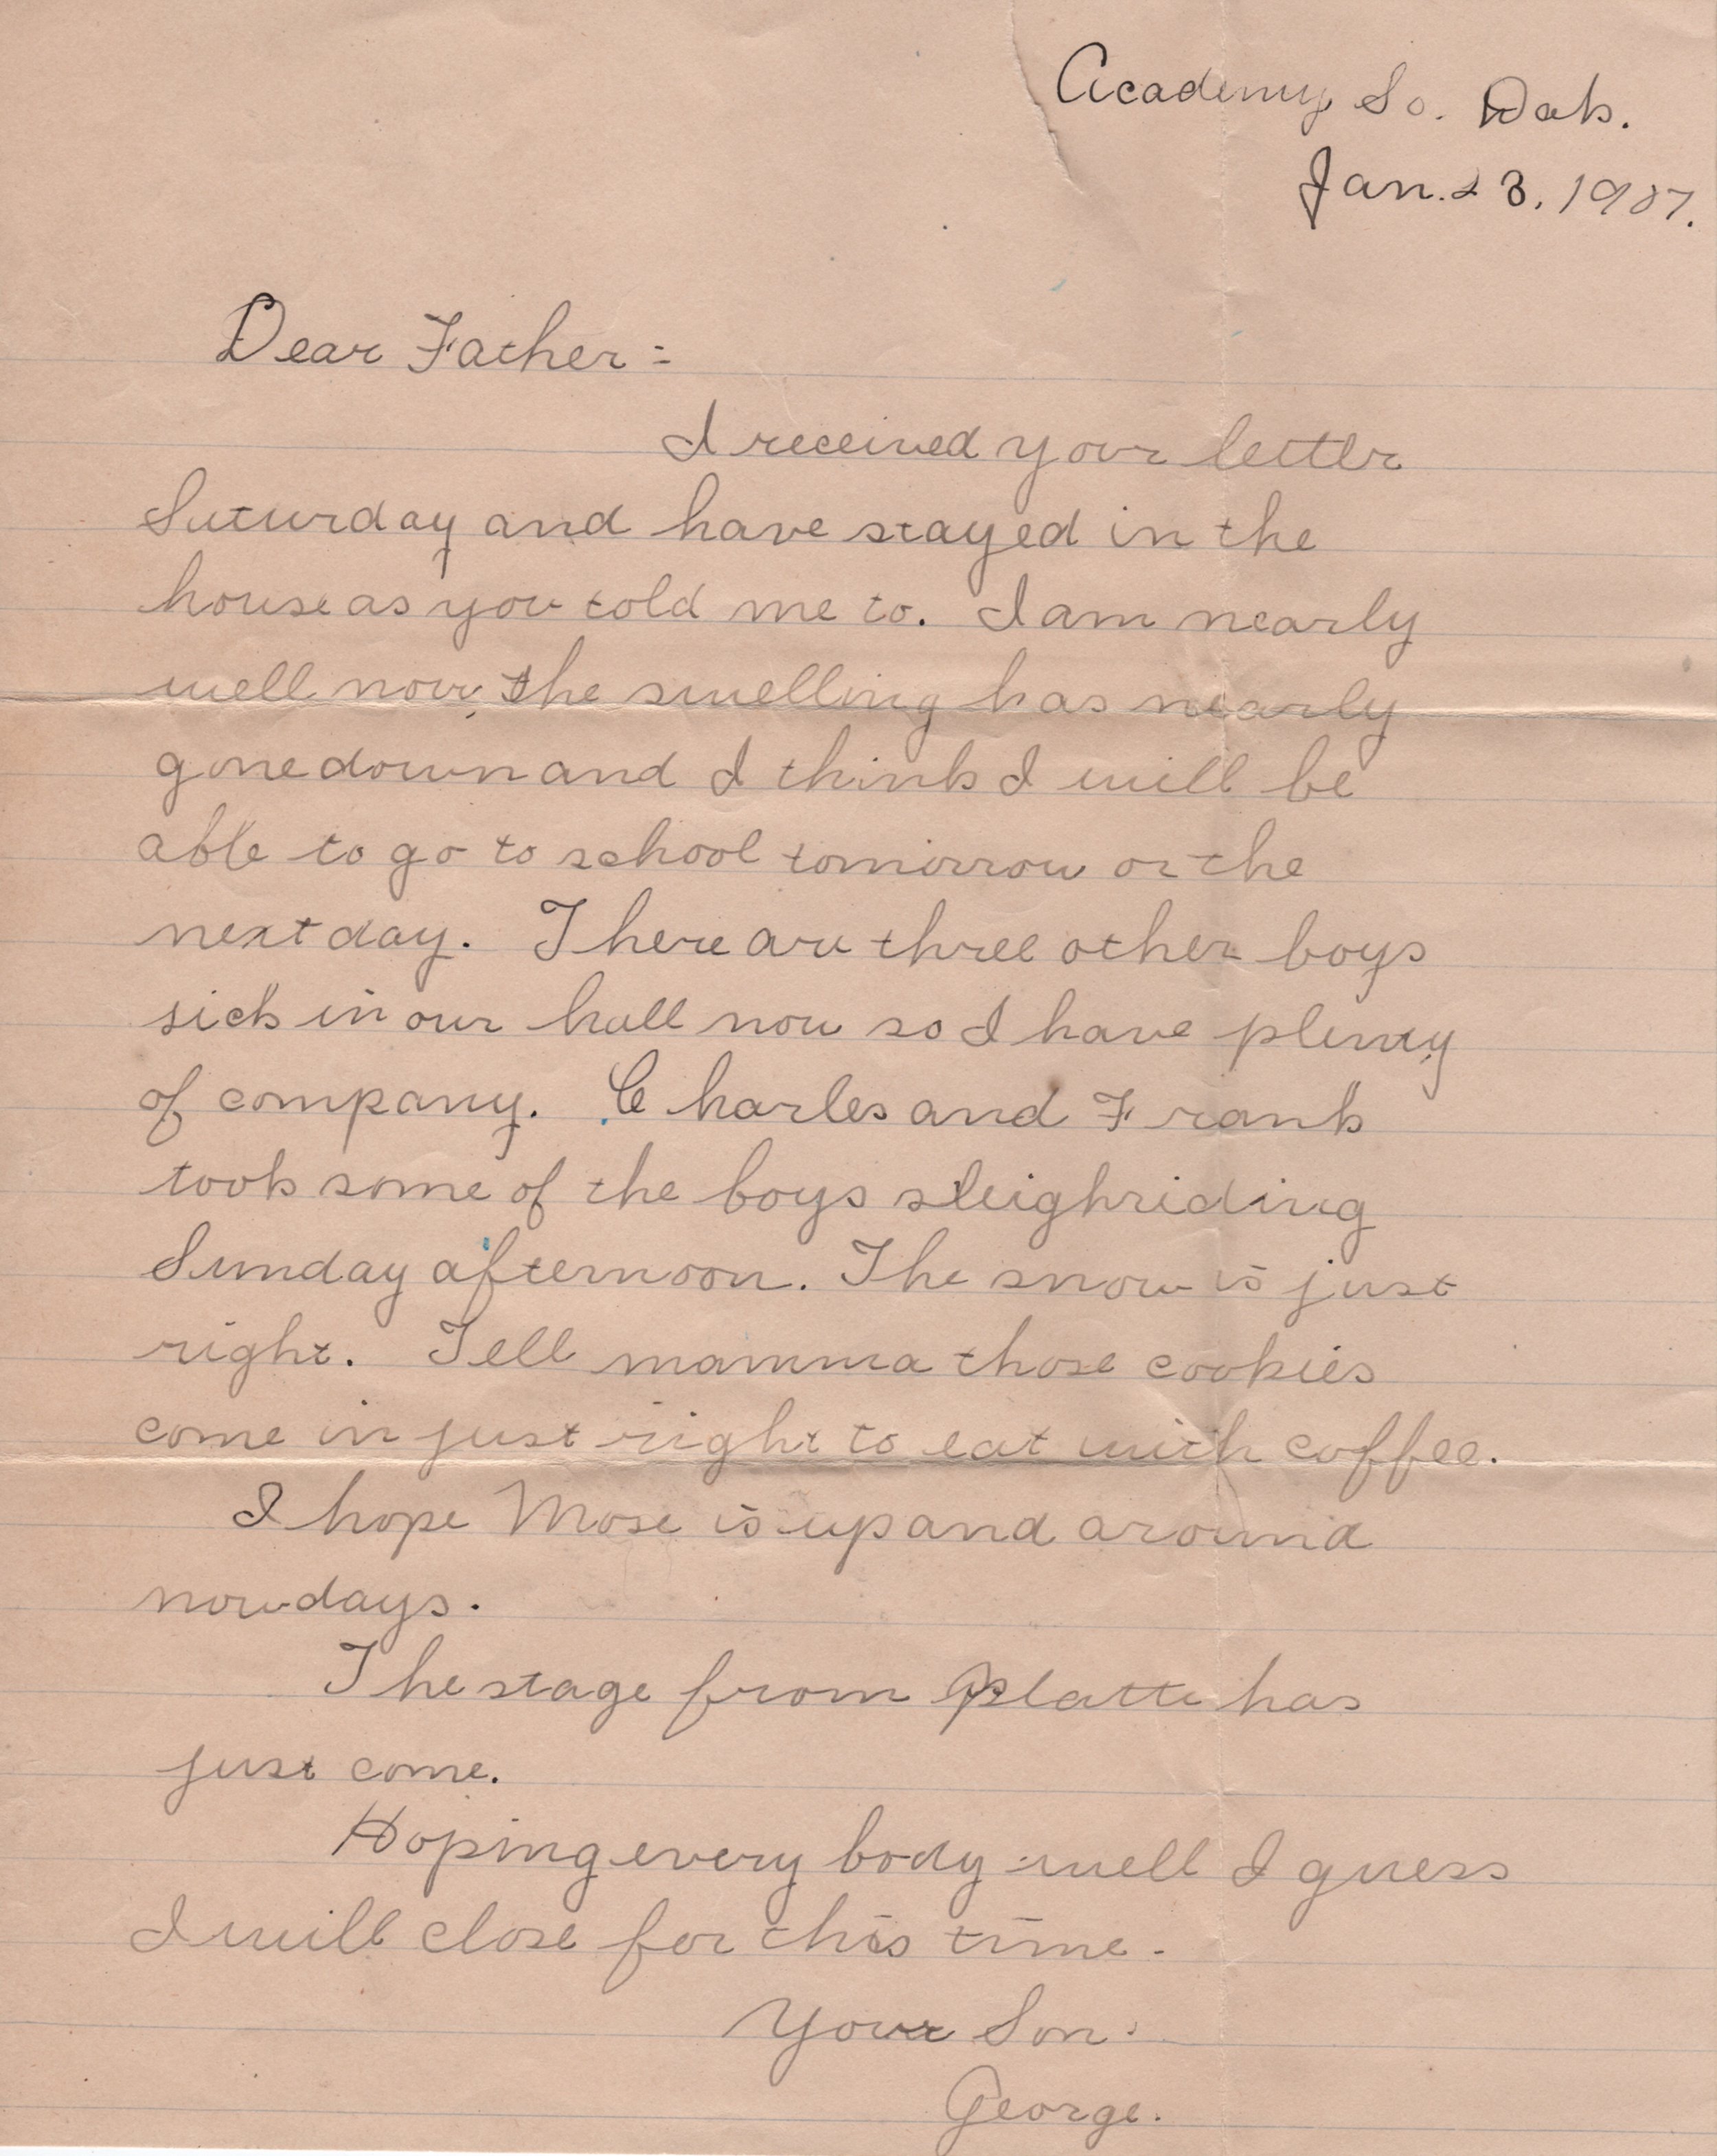 Academy So. Dak.
Jan. 23, 1907.
Dear Father:
I received your letter
Saturday and have stayed in the
house as you told me to. I am nearly
well now, the swelling has nearly
gone down and I think I will be
able to go to school tomorrow or the
next day. There are three other boys
sick in our hall now so I have plenty
of company. Charles and Frank
took some of the boys sleighriding
Sunday afternoon. The snow is just
right. Tell mamma those cookies
come in just right to eat with coffee.
I hope Mose is up and around
nowdays.
The stage from Platte has
just come.
Hoping every body well I guess
I will close for this time.
Your Son:
George.